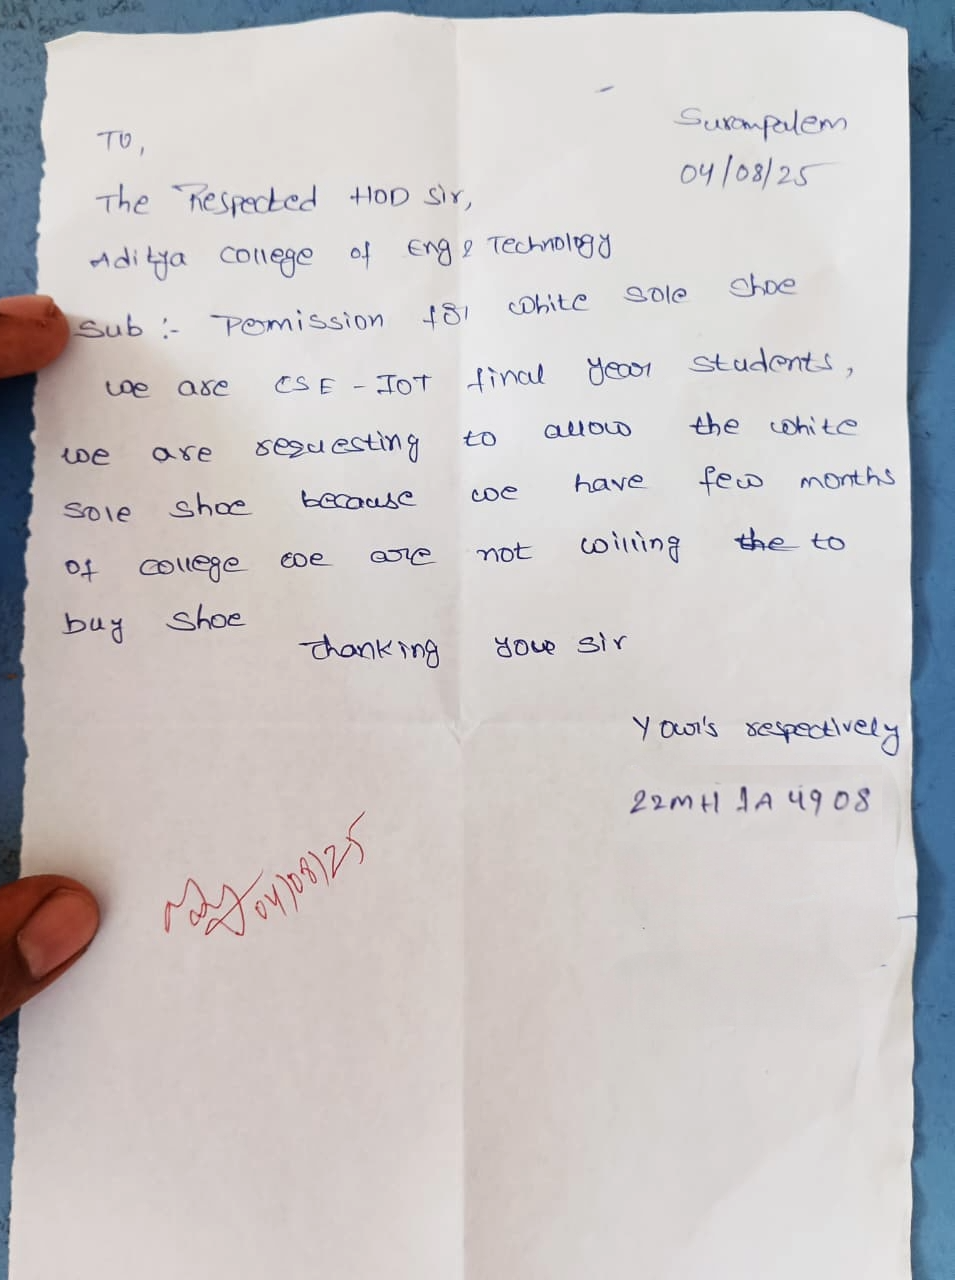 Surampalem
04/08/25
To,
The Respected HOD Sir,
Aditya College of Eng & Technology
Sub :- Permission for white sole shoe
we are CSE - IOT final year students,
we are requesting to allow the white
sole shoe because we have few months
of college we are not willing the to
buy shoe
Thanking you sir
Your's respectively
22MH1A4908
04/08/25